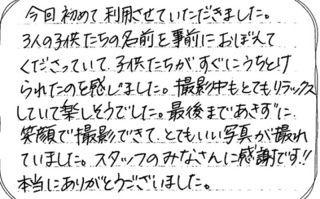 今回初めて利用させていただきました。
3人の子供たちの名前を事前におぼえて
くださっていて、子供たちがすぐにうちとけ
られたのを感じました。撮影中もとてもリラックス
していて楽しそうでした。最後まであきずに
笑顔で撮影できて、とてもいい写真が撮れ
ていました。スタッフのみなさんに感謝です!!
本当にありがとうございました。